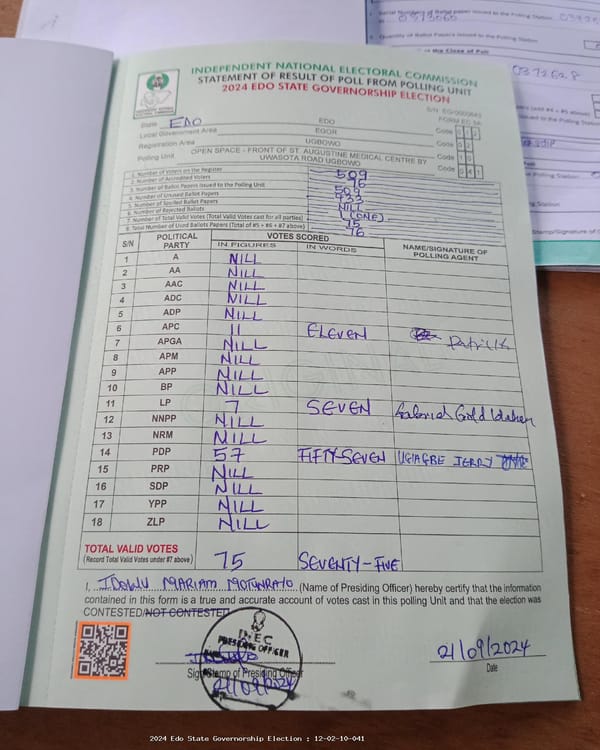 INDEPENDENT NATIONAL ELECTORAL COMMISSION
STATEMENT OF RESULT OF POLL FROM POLLING UNIT
2024 EDO STATE GOVERNORSHIP ELECTION
FORM EC 8A
State EDO EDO Code 1 2
Local Government Area EGOR Code 0 2
Registration Area UGBOWO Code 1 0
Polling Unit OPEN SPACE - FRONT OF ST. AUGUSTINE MEDICAL CENTRE BY UWASOTA ROAD UGBOWO Code 0 4 1
1. Number of Voters on the Register 509
2. Number of Accredited Voters 76
3. Number of Ballot Papers Issued to the Polling Unit 509
4. Number of Unused Ballot Papers 433
5. Number of Spoiled Ballot Papers NILL
6. Number of Rejected Ballots 1 (ONE)
7. Number of Total Valid Votes (Total Valid Votes cast for all parties) 75
8. Total Number of Used Ballots Papers (Total of #5 + #6 + #7 above) 76
S/N POLITICAL PARTY VOTES SCORED NAME/SIGNATURE OF POLLING AGENT
IN FIGURES IN WORDS
1 A NILL
2 AA NILL
3 AAC NILL
4 ADC NILL
5 ADP NILL
6 APC 11 ELEVEN Patrick
7 APGA NILL
8 APM NILL
9 APP NILL
10 BP NILL
11 LP 7 SEVEN Gold
12 NNPP NILL
13 NRM NILL
14 PDP 57 FIFTY-SEVEN UGIAGBE JERRY
15 PRP NILL
16 SDP NILL
17 YPP NILL
18 ZLP NILL
TOTAL VALID VOTES
(Record Total Valid Votes under #7 above) 75 SEVENTY-FIVE
I, IDOWU MARIAM MOTUNRAYO (Name of Presiding Officer) hereby certify that the information
contained in this form is a true and accurate account of votes cast in this polling Unit and that the election was
CONTESTED/NOT CONTESTED
INEC
PRESIDING OFFICER
21/09/2024
Sign/Stamp of Presiding Officer
21/09/2024
Date
2024 Edo State Governorship Election : 12-02-10-041